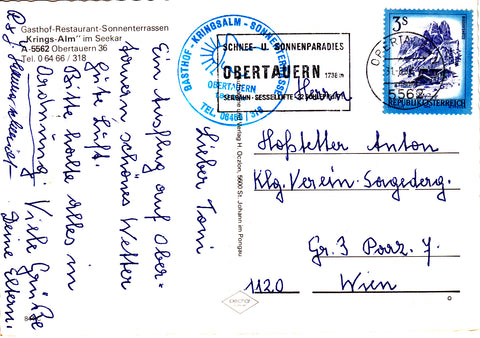 Gasthof-Restaurant-Sonnenterrassen
„Krings-Alm" im Seekar
A-5562 Obertauern 36
Tel. 0 64 66 / 318
GASTHOF-KRINGSALM-SONNENTERRASSE
OBERTAUERN
TEL. 06466 / 318
SCHNEE- U. SONNENPARADIES
OBERTAUERN 1738 m
SESSELLIFTE
3 S
REPUBLIK ÖSTERREICH
OBERTAUERN
5562
Lieber Toni
Ein Ausflug auf Ober-
tauern schönes Wetter
gute Luft.
Bitte halte alles in
Ordnung! Viele Grüße
Deine Eltern.
Verlag H. Oczlon, 5600 St. Johann im Pongau
Herrn
Hofstetter Anton
Klg. Verein-Sorgederg.
Gr. 3 Parz. 7.
1120 Wien